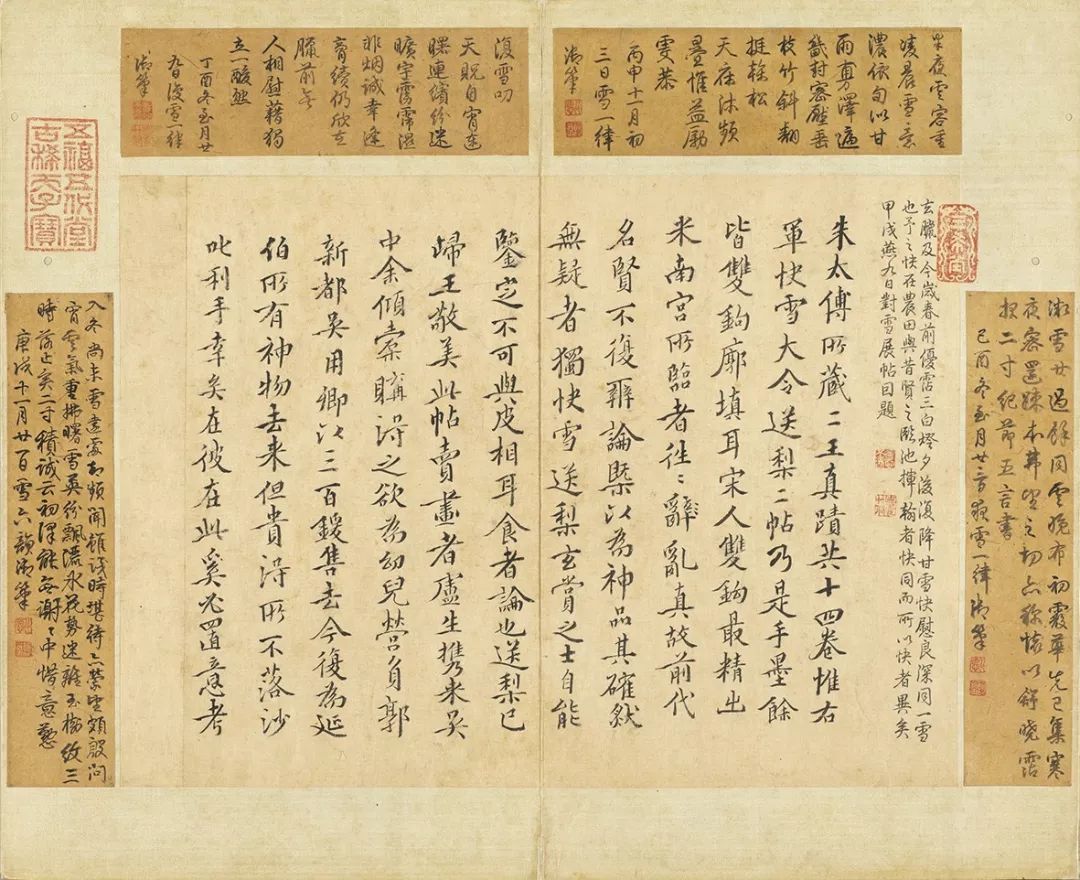 半夜雲容重
凌晨雪景
濃依旬以甘
雨真澤遍
封密壓垂
枝竹斜翻
挺幹松
天庥沐頻
疊惟益勵
雯恭
丙申十一月初
三日雪一律
御筆
復雪叨
天貺自宵連
曙連續紛迷
曠宇霑霈濕
非烟誠幸逢
膏續仍欣在
臘前無
人相慰藉獨
立一酸然
丁酉冬至月廿
九日復雪一律
御筆
夜密還疎本
夜二寸紀節五言書
己酉冬至月廿
夜雪一律御筆
玄臘及今歲春前優霑三白燈夕後復降甘雪快慰良深同一雪
也予之快在農田與昔賢之臨池揮翰者快同而所以快者異矣
甲戌燕九日對雪展帖因題
朱太傅所藏二王真蹟共十四卷惟右
軍快雪大令送梨二帖乃是手墨餘
皆雙鉤廓填耳宋人雙鉤最精出
米南宮所臨者往往辭亂真故前代
名賢不復辨論槩以為神品其確然
無疑者獨快雪送梨玄賞之士自能
鑒定不可與皮相耳食者論也送梨已
歸王敬美此帖賣畫者盧生攜來吳
中余傾橐購得之欲為幼兒營負郭
新都吳用卿以三百鍰售去今復為延
伯所有神物去來但貴得所不落沙
叱利手幸矣在彼在此奚必置意考
五福五代堂
古稀天子寶
入冬尚未雪遠
宵雲氣重拂曙雪英紛飄
時落止亥二寸積誠云初澤能無謝謝中惜意慇
庚戌十一月廿一日雪六韻御筆